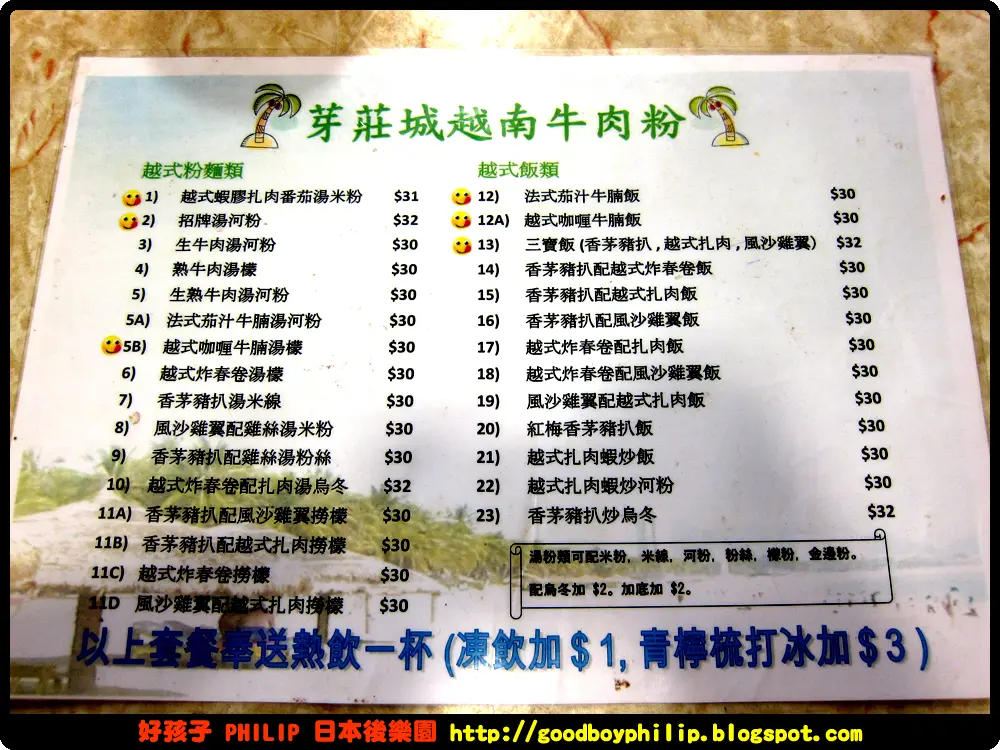 芽莊城越南牛肉粉
越式粉麵類
1) 越式蝦膠扎肉番茄湯米粉 $31
2) 招牌湯河粉 $32
3) 生牛肉湯河粉 $30
4) 熟牛肉湯檬 $30
5) 生熟牛肉湯河粉 $30
5A) 法式茄汁牛腩湯河粉 $30
5B) 越式咖喱牛腩湯檬 $30
6) 越式炸春卷湯檬 $30
7) 香茅豬扒湯米線 $30
8) 風沙雞翼配雞絲湯米粉 $30
9) 香茅豬扒配雞絲湯粉絲 $30
10) 越式炸春卷配扎肉湯烏冬 $32
11A) 香茅豬扒配風沙雞翼撈檬 $30
11B) 香茅豬扒配越式扎肉撈檬 $30
11C) 越式炸春卷撈檬 $30
11D 風沙雞翼配越式扎肉撈檬 $30
越式飯類
12) 法式茄汁牛腩飯 $30
12A) 越式咖喱牛腩飯 $30
13) 三寶飯 (香茅豬扒 , 越式扎肉 , 風沙雞翼) $32
14) 香茅豬扒配越式炸春卷飯 $30
15) 香茅豬扒配越式扎肉飯 $30
16) 香茅豬扒配風沙雞翼飯 $30
17) 越式炸春卷配扎肉飯 $30
18) 越式炸春卷配風沙雞翼飯 $30
19) 風沙雞翼配越式扎肉飯 $30
20) 紅梅香茅豬扒飯 $30
21) 越式扎肉蝦炒飯 $30
22) 越式扎肉蝦炒河粉 $30
23) 香茅豬扒炒烏冬 $32
湯粉類可配米粉, 米線, 河粉, 粉絲, 檬粉, 金邊粉。
配烏冬加 $2。加底加 $2。
以上套餐奉送熱飲一杯 (凍飲加＄1, 青檸梳打冰加＄3 )
好孩子 PHILIP 日本後樂園 http://goodboyphilip.blogspot.com/